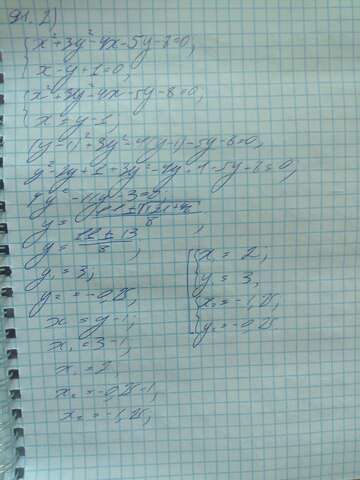 91. 2)
{ x²+3y²-4x-5y-8=0;
x-y+1=0;
{ x²+3y²-4x-5y-8=0;
x=y-1;
(y-1)²+3y²-4(y-1)-5y-8=0;
y²-2y+1+3y²-4y+4-5y-8=0;
4y²-11y-3=0;
y=
y=11±13/8;
y₁=3;
y₂=-0,25;
x=y-1;
x₁=3-1;
x₁=2;
x₂=-0,25-1;
x₂=-1,25;
x₁=2,
y₁=3,
x₂=-1,25,
y₂=-0,25